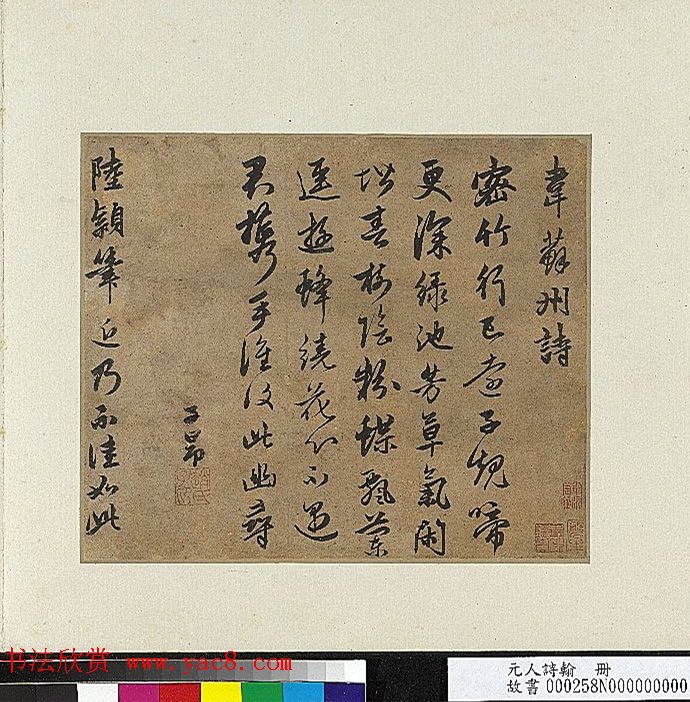 韋蘇州詩
密竹行已遠子規啼
更深緑池芳草氣閑
堦春樹陰粉蝶飄蘭
逕遊蜂繞花心不遇
君攜手誰復此幽尋
子昂
趙氏子昂
陸穎筆近乃不佳如此
书法欣赏 www.yac8.com
元人詩翰 冊
故書 000258N000000000